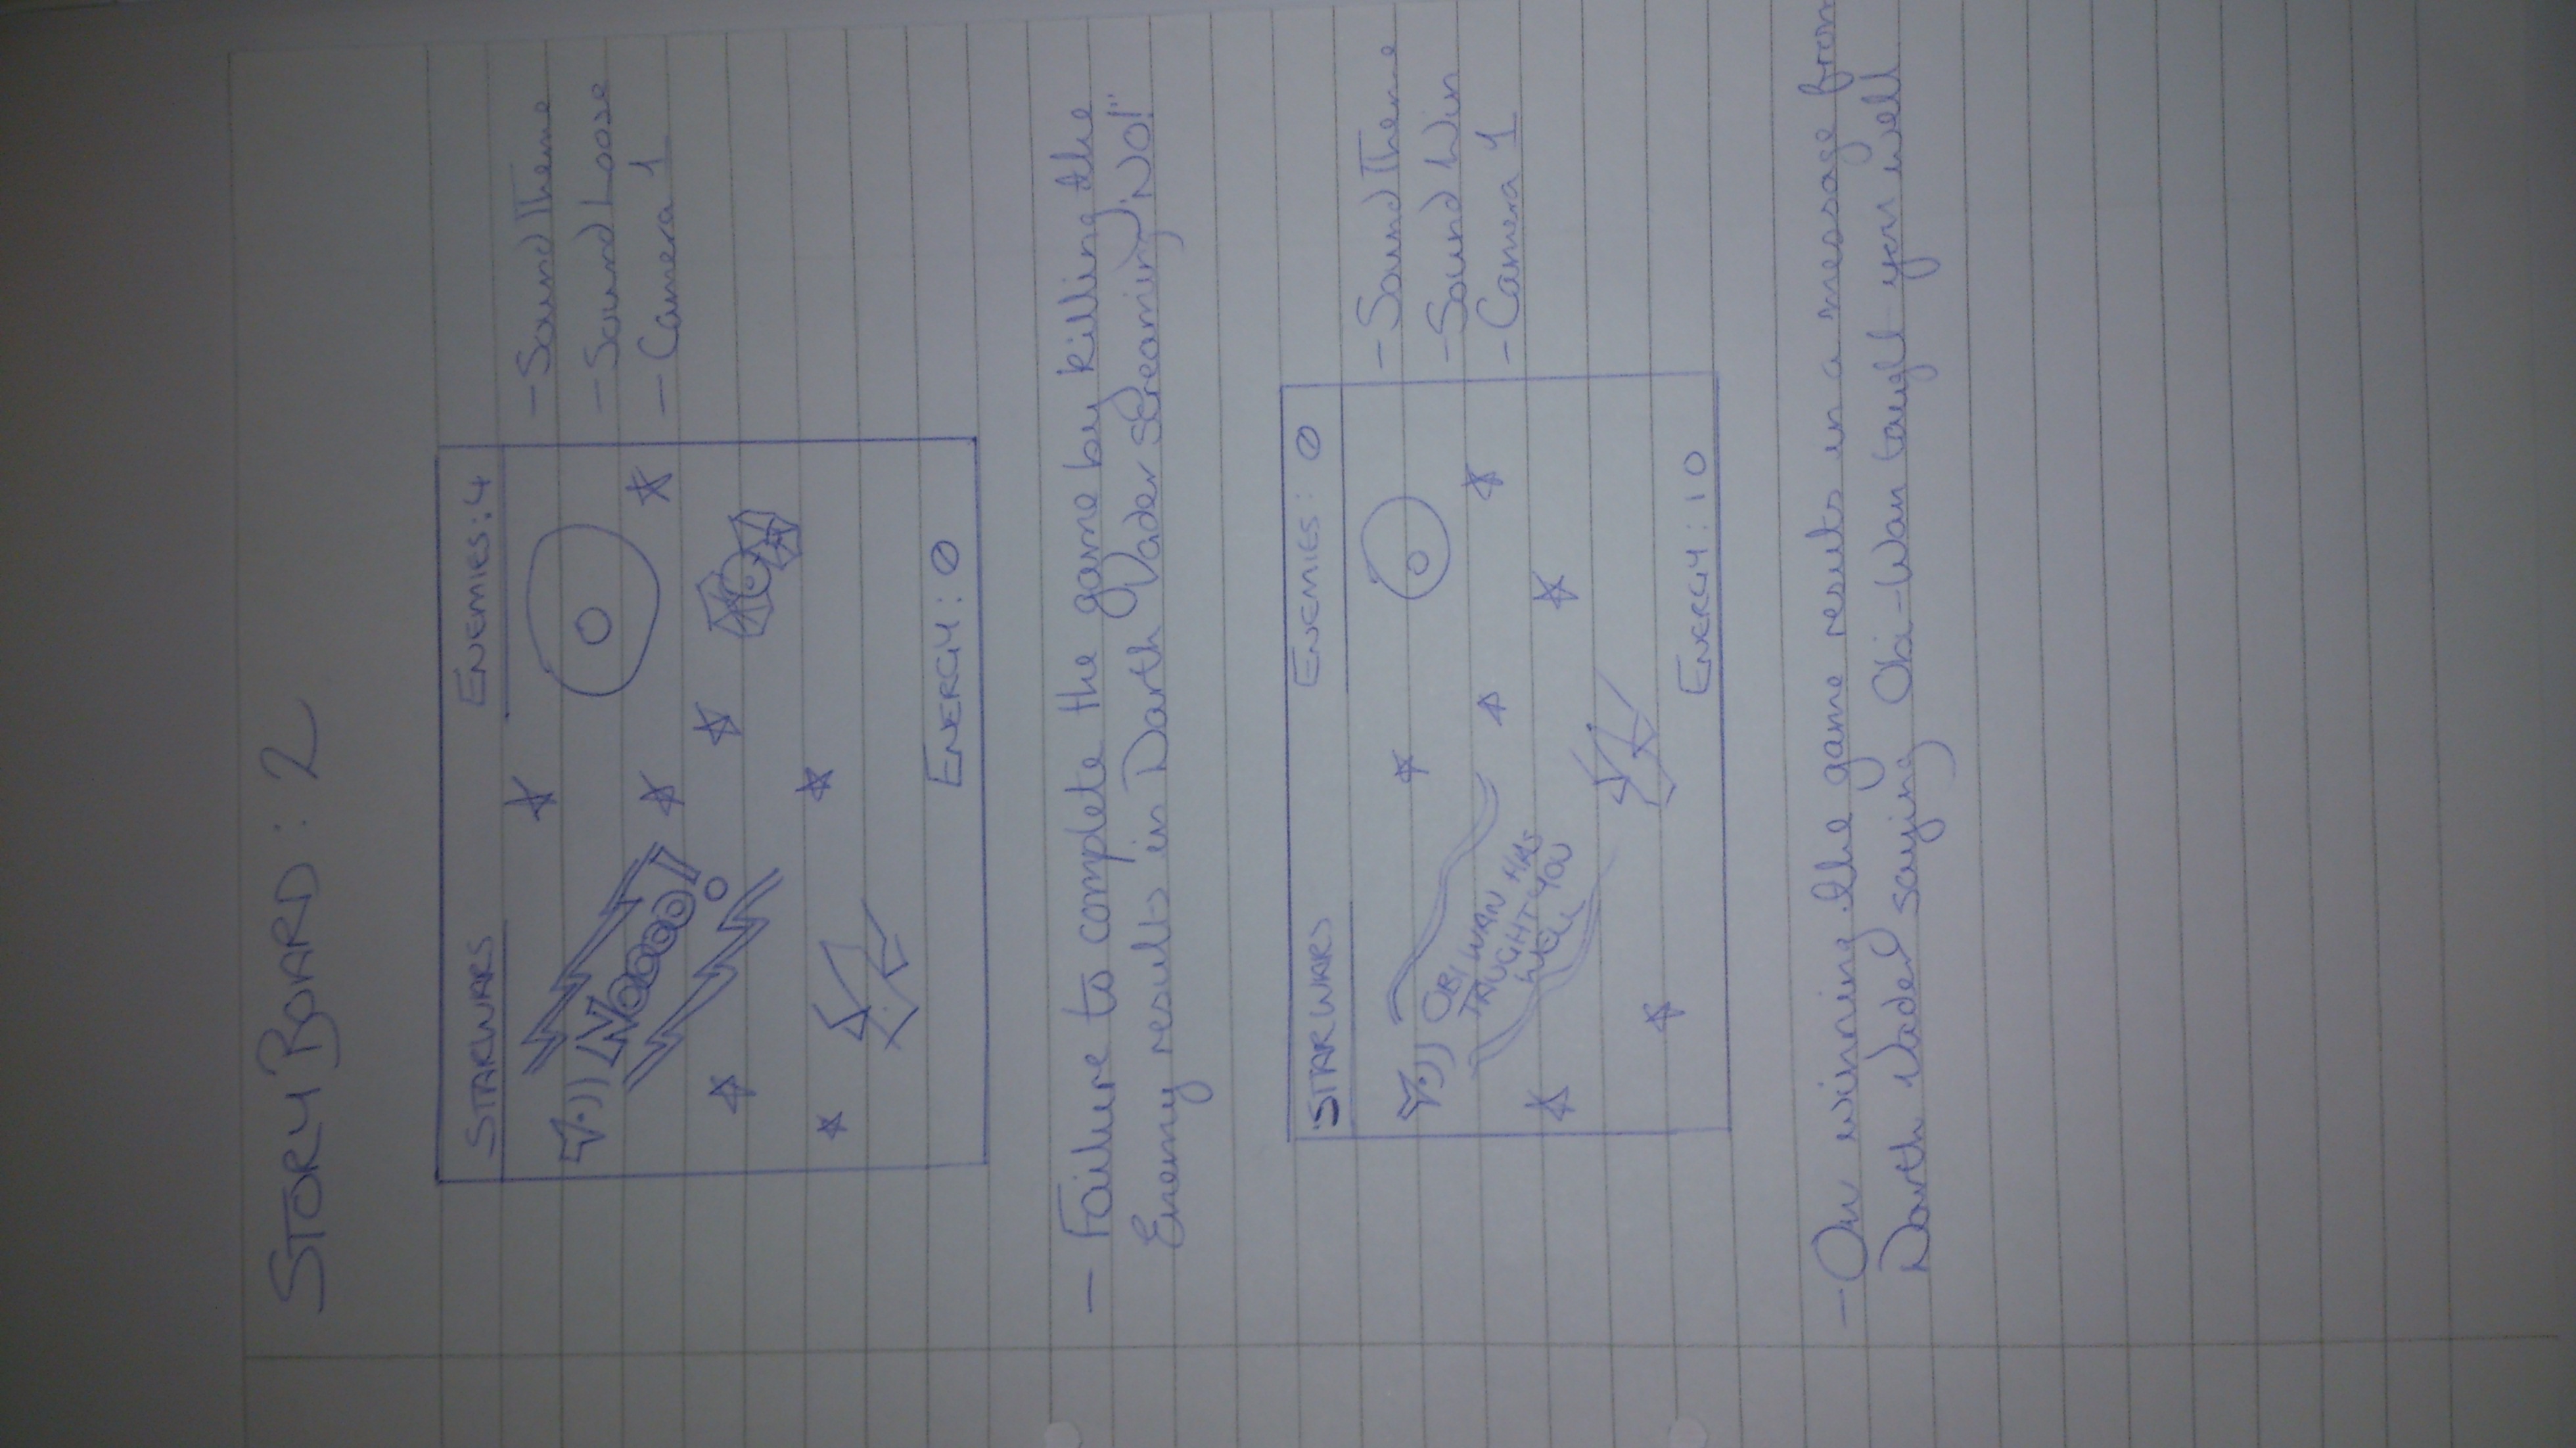 STORY BOARD : 2
STARWARS
ENEMIES: 4
Noooo!
ENERGY: 0
- Sound Theme
- Sound Loose
- Camera 1
- Failure to complete the game by killing the
Enemy results in Darth Vader screaming "NO!"
STARWARS
ENEMIES: 0
OBI WAN HAS
TAUGHT YOU
WELL
ENERGY: 10
- Sound Theme
- Sound Win
- Camera 1
- On winning the game results in a message from
Darth Vader saying Obi-Wan taught you well